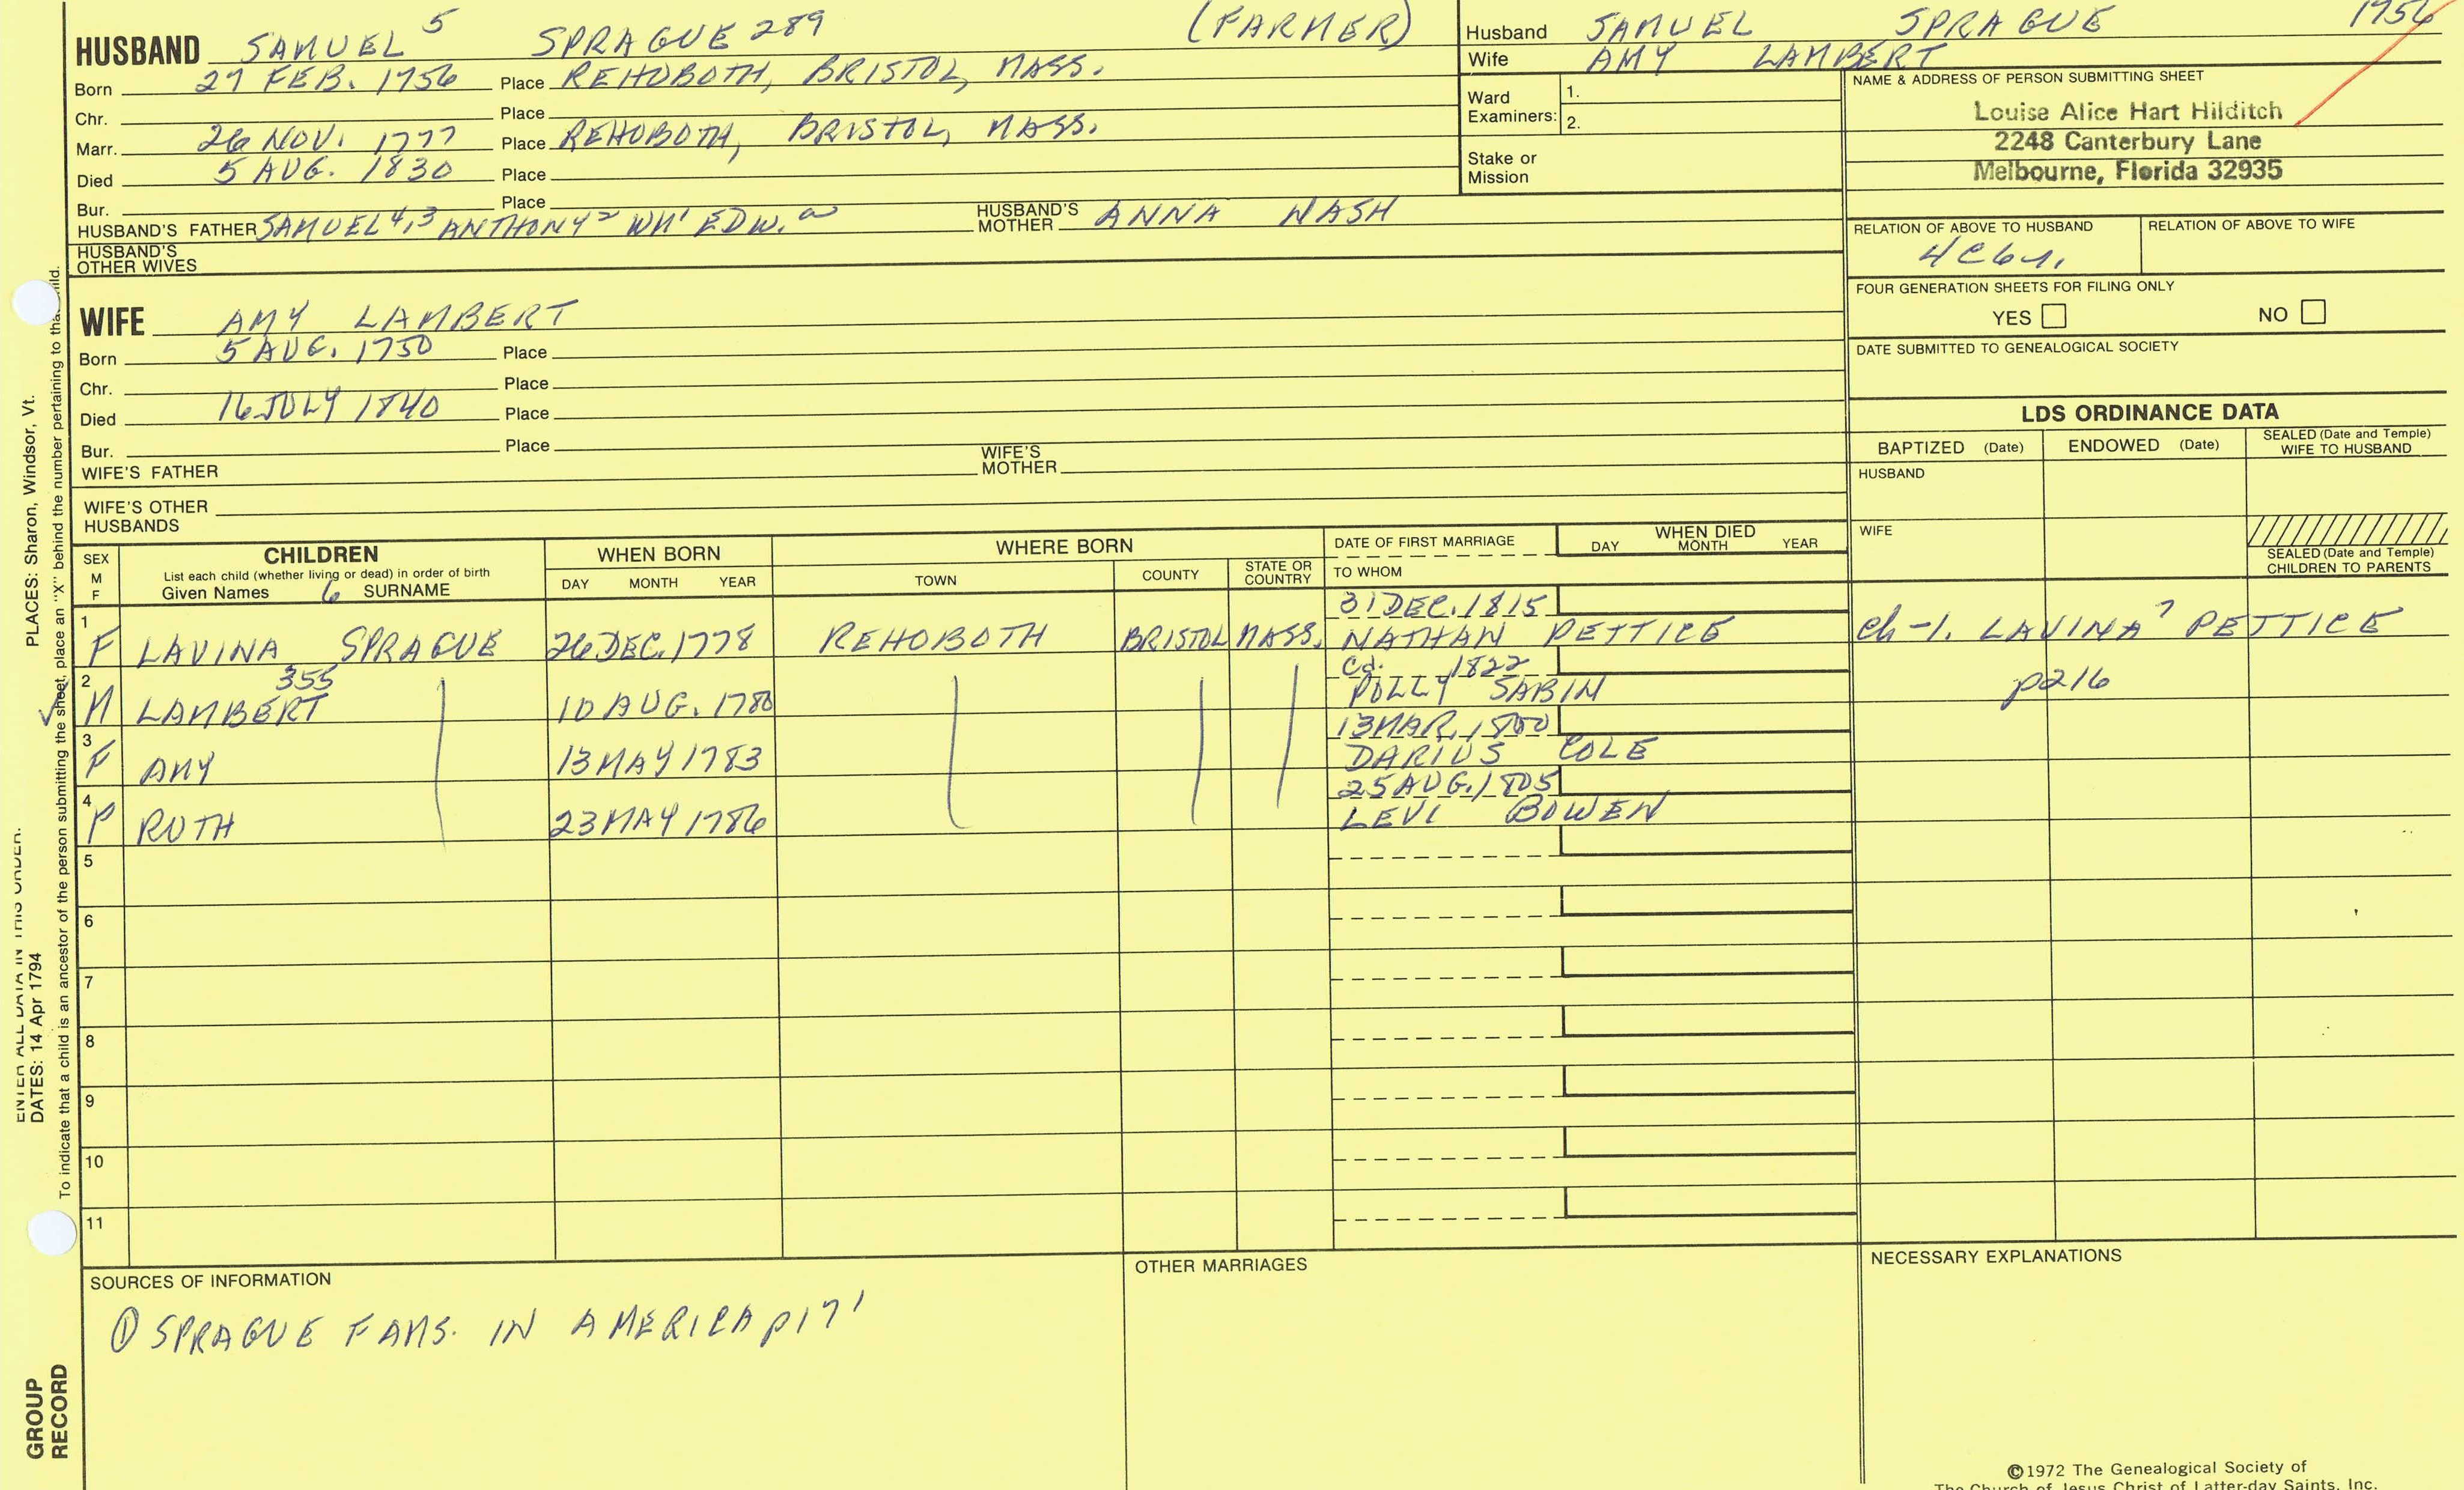 HUSBAND SAMUEL 5 SPRAGUE 289 (FARMER)
Born 27 FEB. 1756 Place REHOBOTH, BRISTOL, MASS.
Chr. Place
Marr. 26 NOV. 1777 Place REHOBOTH, BRISTOL, MASS.
Died 5 AUG. 1830 Place
Bur. Place
HUSBAND'S FATHER SAMUEL 4,3 ANTHONY 2 WM 1 EDW. a HUSBAND'S MOTHER ANNA NASH
HUSBAND'S OTHER WIVES
Husband SAMUEL SPRAGUE 1756
Wife AMY LAMBERT
Ward Examiners: 1.
2.
Stake or Mission
NAME & ADDRESS OF PERSON SUBMITTING SHEET
Louise Alice Hart Hilditch
2248 Canterbury Lane
Melbourne, Florida 32935
RELATION OF ABOVE TO HUSBAND RELATION OF ABOVE TO WIFE
4C6
FOUR GENERATION SHEETS FOR FILING ONLY
YES NO
DATE SUBMITTED TO GENEALOGICAL SOCIETY
WIFE AMY LAMBERT
Born 5 AUG. 1750 Place
Chr. Place
Died 16 JULY 1840 Place
Bur. Place
WIFE'S FATHER WIFE'S MOTHER
WIFE'S OTHER HUSBANDS
LDS ORDINANCE DATA
BAPTIZED (Date) ENDOWED (Date) SEALED (Date and Temple) WIFE TO HUSBAND
HUSBAND
WIFE
SEALED (Date and Temple) CHILDREN TO PARENTS
SEX M F
CHILDREN
List each child (whether living or dead) in order of birth
Given Names 6 SURNAME
WHEN BORN
DAY MONTH YEAR
WHERE BORN
TOWN COUNTY STATE OR COUNTRY
DATE OF FIRST MARRIAGE
TO WHOM
WHEN DIED
DAY MONTH YEAR
31 DEC. 1815
1 F LAVINA SPRAGUE 26 DEC. 1778 REHOBOTH BRISTOL MASS. NATHAN PETTICE Ch-1. LAVINA 7 PETTICE
355 Cd. 1822
2 M LAMBERT 10 AUG. 1780 POLLY SABIN p216
13 MAR. 1800
3 F AMY 13 MAY 1783 DARIUS COLE
25 AUG. 1805
4 F RUTH 23 MAY 1786 LEVI BOWEN
5
6
7
8
9
10
11
SOURCES OF INFORMATION
① SPRAGUE FAMS. IN AMERICA p171
OTHER MARRIAGES
NECESSARY EXPLANATIONS
©1972 The Genealogical Society of
The Church of Jesus Christ of Latter-day Saints, Inc.
ENTER ALL DATA IN THIS ORDER:
DATES: 14 Apr 1794 PLACES: Sharon, Windsor, Vt.
To indicate that a child is an ancestor of the person submitting the sheet, place an "X" behind the number pertaining to that child.
GROUP
RECORD